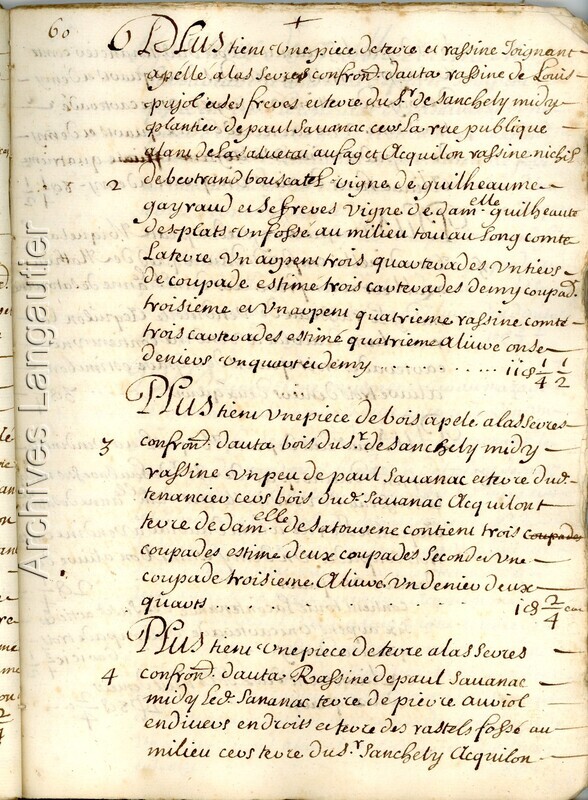 60
PLus tient Une piece de terre et rassine Joignant
apellé a las serres confrond. d'auta rassine de Louis
pujol et ses freres et terre du s.r de sanchely midy
plantier de paul sauanac cers La rue publique
alant de La saluetat au faget Acquilon rassine
2
de bertrand bouscatel vigne de guilheaume
gayraud et se freres vigne de dam.elle guilheaute
des plats un fossé au milieu tout au Long comte
La terre un arpent trois quarterades un tiers
de coupade estime trois carterades demy coupad.
troisieme et un arpent quatrieme rassine comte
trois carterades estimé quatrieme aliuré onse
deniers un quart et demy 1/4 1/2
PLus tient Une piece de bois apelé a las serres
3
confrond. d'auta bois du s.r de sanchely midy
rassine un peu de paul sauanac et terre dud.
tenancier cers bois dud. sauanac Acquilont
terre de dam.elle de contient trois coupades
coupades estime deux coupades second et une
coupade troisieme Aliuré un denier deux
quarts 2/4
PLus tient Une piece de terre a las serres
4
confrond. d'auta Rassine de paul sauanac
midy Led. sauanac terre de pierre auriol
en diuers endroits et terre des rastels fossé au
milieu cers terre du s.r sanchely Acquilon
Archives Langautier